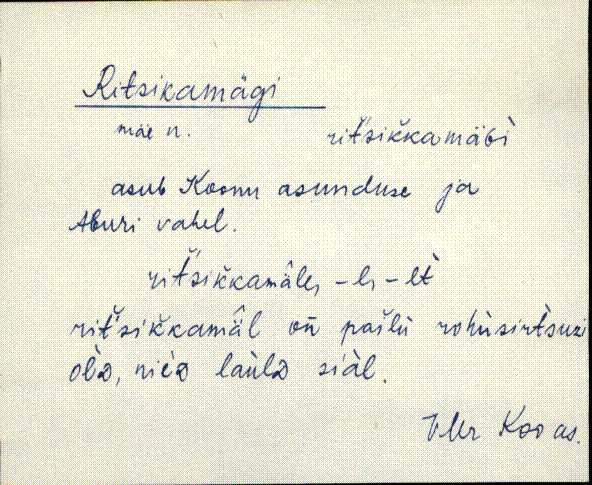 Ritsikamägi
mäe n. rit́śikkamäɢì
asub Koonu asunduse ja
Aburi vahel.
rit́śikkamäle, -l, -lt̀
rit́śikkamäl on pal̆lù rohùsirt̀suzi
laùlᴅ siäl.
Koo as.